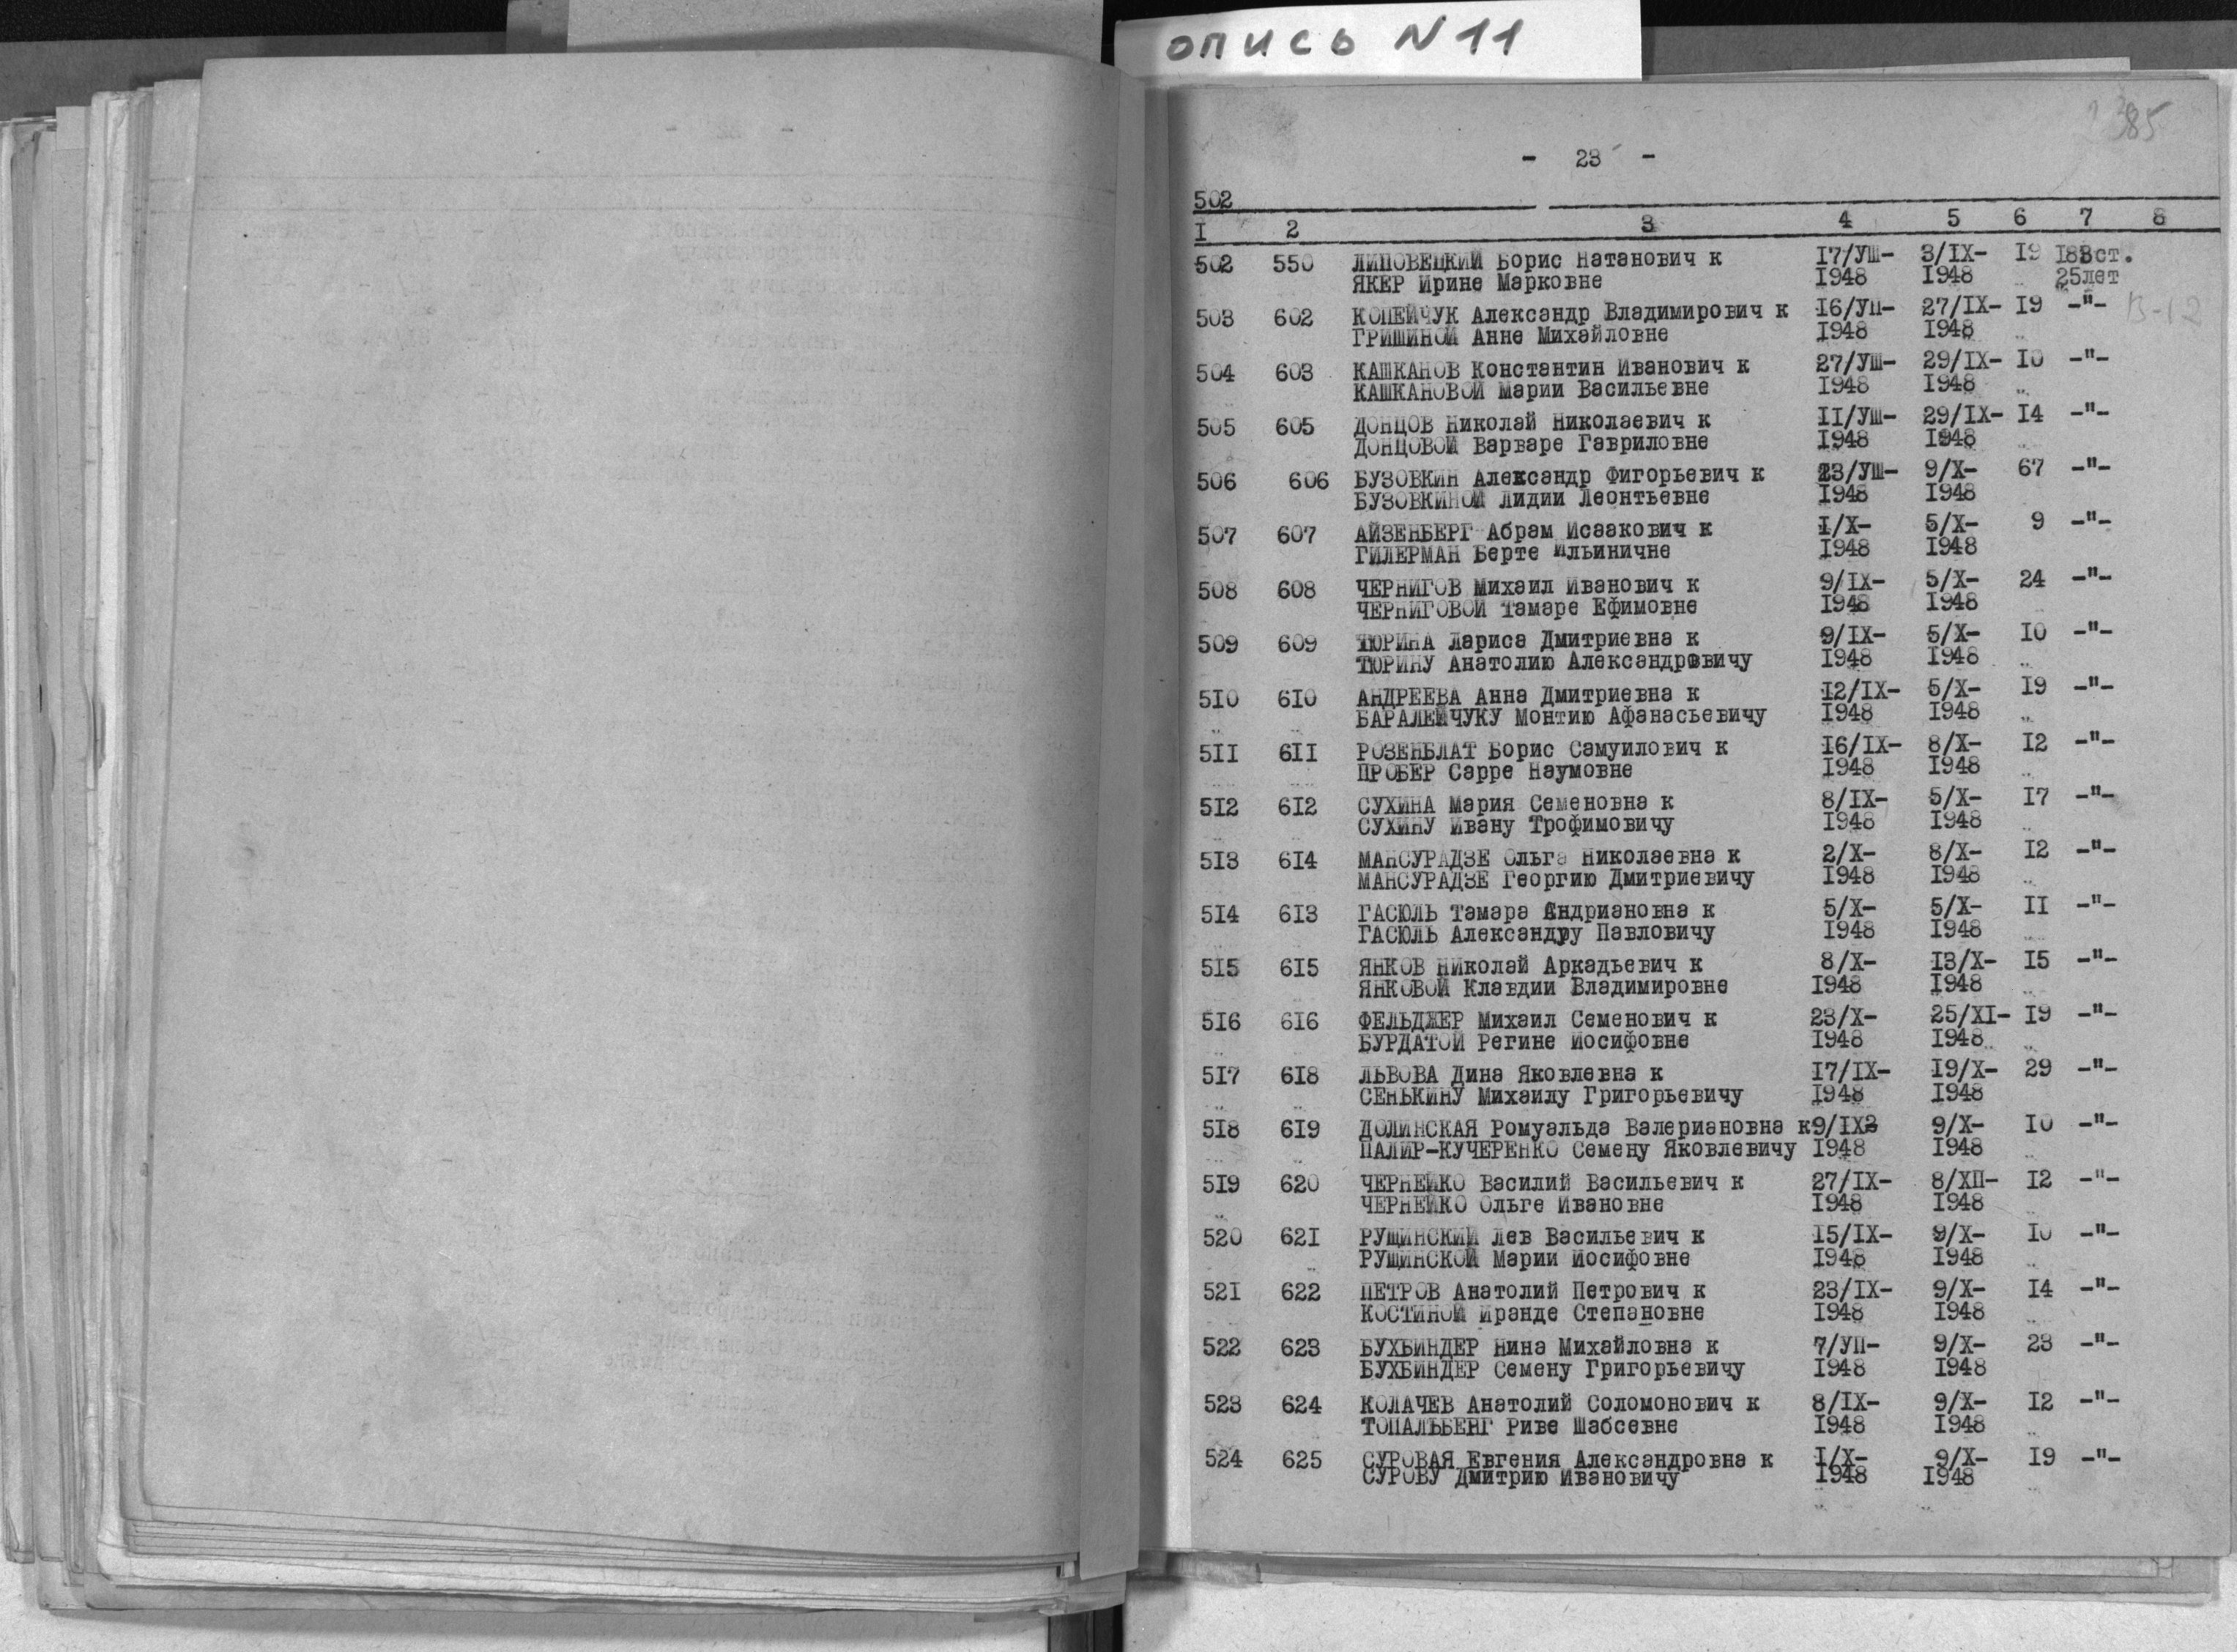 опись N 11
385
- 23 -
502
I 2 3 4 5 6 7 8
502 550 ЛИПОВЕЦКИЙ Борис Натанович к I7/УШ- 3/IX- I9 I83ст.
ЯКЕР Ирине Марковне I948 I948 25лет
503 602 КОПЕЙЧУК Александр Владимирович к I6/УП- 27/IX- I9 -"- В-12
ГРИШИНОЙ Анне Михайловне I948 I948
504 603 КАШКАНОВ Константин Иванович к 27/УШ- 29/IX- I0 -"-
КАШКАНОВОЙ Марии Васильевне I948 I948
505 605 ДОНЦОВ Николай Николаевич к II/УШ- 29/IX- I4 -"-
ДОНЦОВОЙ Варваре Гавриловне I948 I948
506 606 БУЗОВКИН Александр Фигорьевич к 23/УШ- 9/X- 67 -"-
БУЗОВКИНОЙ Лидии Леонтьевне I948 I948
507 607 АЙЗЕНБЕРГ Абрам Исаакович к I/X- 5/X- 9 -"-
ГИЛЕРМАН Берте Ильиничне I948 I948
508 608 ЧЕРНИГОВ Михаил Иванович к 9/IX- 5/X- 24 -"-
ЧЕРНИГОВОЙ Тамаре Ефимовне I948 I948
509 609 ТЮРИНА Лариса Дмитриевна к 9/IX- 5/X- I0 -"-
ТЮРИНУ Анатолию Александровичу I948 I948
5I0 6I0 АНДРЕЕВА Анна Дмитриевна к I2/IX- 5/X- I9 -"-
БАРАЛЕЙЧУКУ Монтию Афанасьевичу I948 I948
5II 6II РОЗЕНБЛАТ Борис Самуилович к I6/IX- 8/X- I2 -"-
ПРОБЕР Сарре Наумовне I948 I948
5I2 6I2 СУХИНА Мария Семеновна к 8/IX- 5/X- I7 -"-
СУХИНУ Ивану Трофимовичу I948 I948
5I3 6I4 МАНСУРАДЗЕ Ольга Николаевна к 2/X- 8/X- I2 -"-
МАНСУРАДЗЕ Георгию Дмитриевичу I948 I948
5I4 6I3 ГАСЮЛЬ Тамара Андриановна к 5/X- 5/X- II -"-
ГАСЮЛЬ Александру Павловичу I948 I948
5I5 6I5 ЯНКОВ НИколай Аркадьевич к 8/X- I3/X- I5 -"-
ЯНКОВОЙ Клавдии Владимировне I948 I948
5I6 6I6 ФЕЛЬДЖЕР Михаил Семенович к 23/X- 25/XI- I9 -"-
БУРДАТОЙ Регине Иосифовне I948 I948
5I7 6I8 ЛЬВОВА Дина Яковлевна к I7/IX- I9/X- 29 -"-
СЕНЬКИНУ Михаилу Григорьевичу I948 I948
5I8 6I9 ДОЛИНСКАЯ Ромуальда Валериановна к9/IX- 9/X- I0 -"-
ПАЛИР-КУЧЕРЕНКО Семену Яковлевичу I948 I948
5I9 620 ЧЕРНЕЙКО Василий Васильевич к 27/IX- 8/ХП- I2 -"-
ЧЕРНЕЙКО Ольге Ивановне I948 I948
520 62I РУЩИНСКИЙ Лев Васильевич к I5/IX- 9/X- I0 -"-
РУЩИНСКОЙ Марии Иосифовне I948 I948
52I 622 ПЕТРОВ Анатолий Петрович к 23/IX- 9/X- I4 -"-
КОСТИНОЙ Иранде Степановне I948 I948
522 623 БУХБИНДЕР Нина Михайловна к 7/УП- 9/X- 23 -"-
БУХБИНДЕР Семену Григорьевичу I948 I948
523 624 КОЛАЧЕВ Анатолий Соломонович к 8/IX- 9/X- I2 -"-
ТОПАЛЬБЕНГ Риве Шабсевне I948 I948
524 625 СУРОВАЯ Евгения Александровна к I/X- 9/X- I9 -"-
СУРОВУ Дмитрию Ивановичу I948 I948